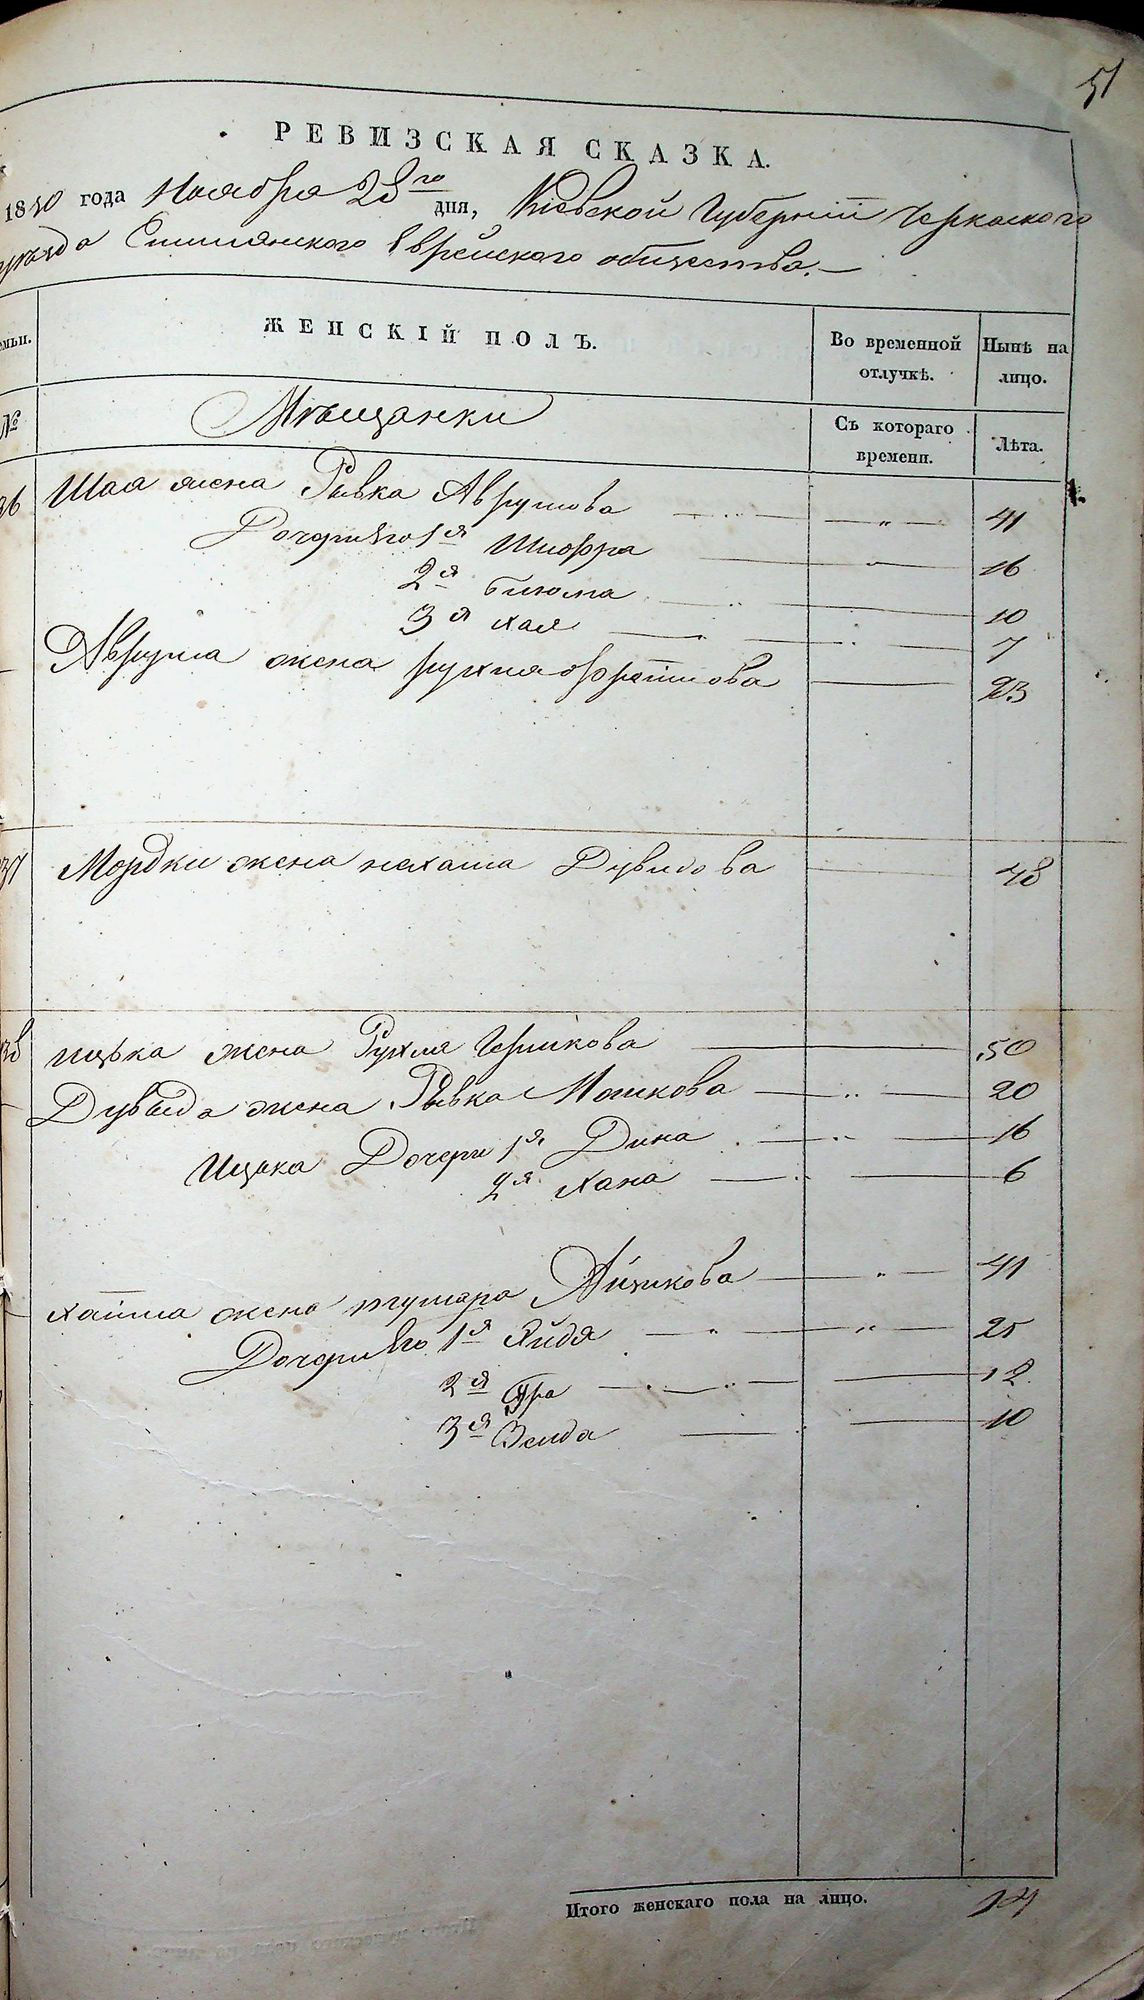 51
РЕВИЗСКАЯ СКАЗКА.
1850 года Ноября 28го дня, Кіевской Губерніи Черкаского
уезда Смилянского Еврейского общества.
ЖЕНСКІЙ ПОЛЪ.
Во временной отлучкѣ.
Нынѣ на лицо.
№
Мѣщанки
Съ котораго времени.
Лѣта.
36 Шая жена Рывка Аврумова — " — 41
Дочери его 1я Шифра " 16
2я Бихма 10
3я Хая 7
Аврума жена Рухля 23
37 Мордки жена Нехама Дувидова 48
38 ицька жена Рухля Гершкова 50
Дувыда жена Рывка Мошкова — " — 20
Ицька Дочери 1я Дина — " — 16
2я Хана 6
хаима жена Айзикова — " — 41
Дочери его 1я — " — 25
2я 12
3я Зелда 10
Итого женскаго пола на лицо. 14